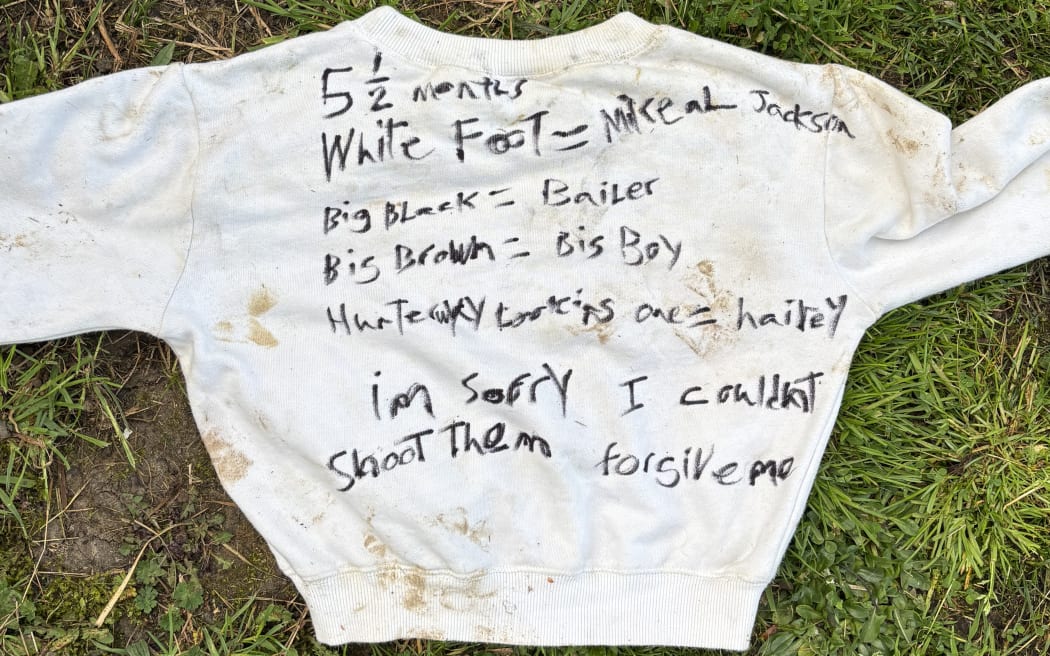 5 ½ months
White Foot = Miceal Jackson
Big Black = Bailer
Big Brown = Big Boy
one = hailey
im sorry I couldnt
shoot them forgive me